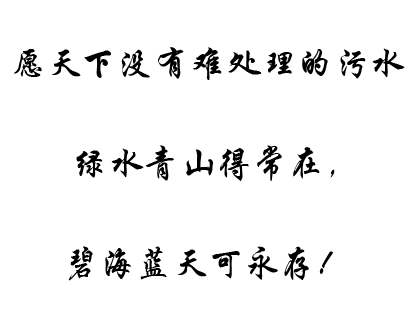 愿天下没有难处理的污水
绿水青山得常在，
碧海蓝天可永存！